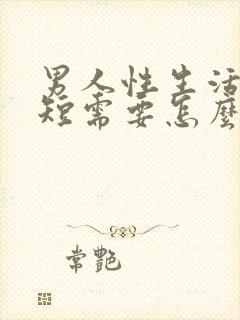 男人性生活
短需要怎麼
常艷